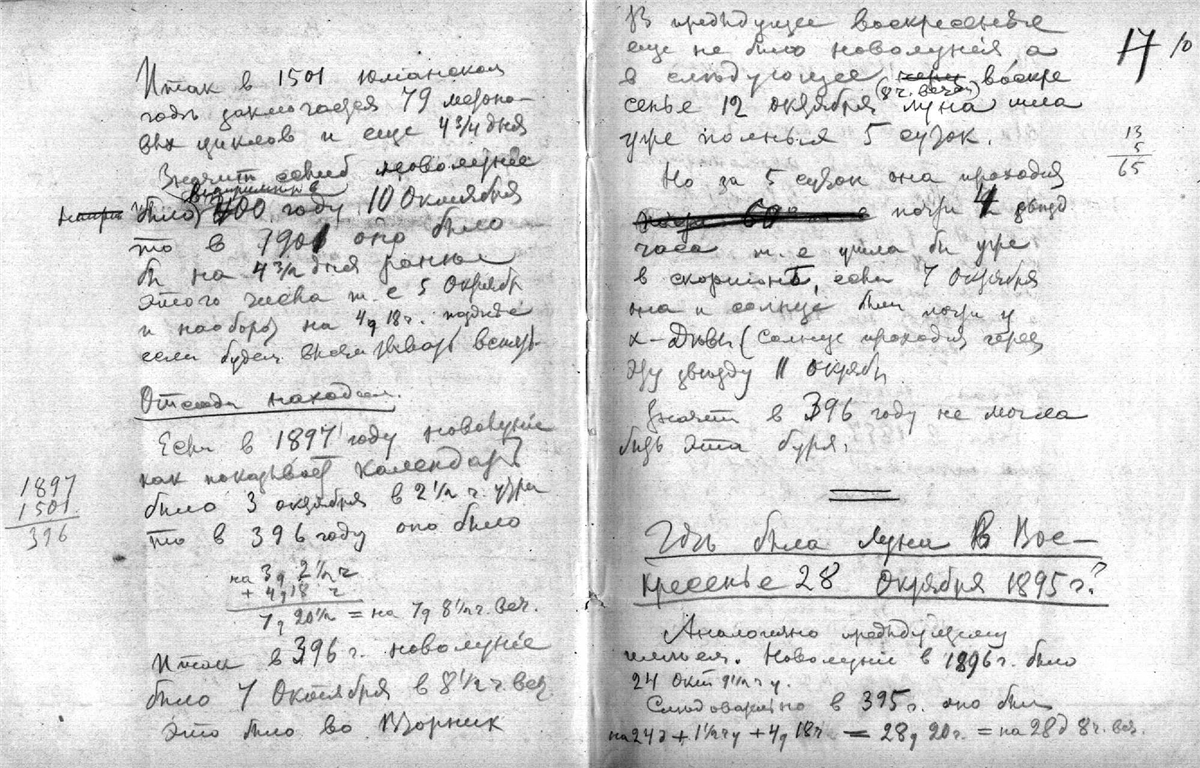 Итак в 1501 юлианском
годѣ заключается 79 метоно-
вых циклов и еще 4 3/4 дня
Значит если б новолуние
было в 400 году 10 Октября
то в 1901 оно было
бы на 4 3/4 дня раньше
этого числа т. е 5 Октября
и наоборот на 4д 18ч. позднее
если будем вспять
Отсюда находим.
Если в 1897 году новолуние
как показывает календарь
было 3 октября в 2 1/2 ч. утра
то в 396 году оно было
1897
1501
396
на 3д 2 1/2 ч
+ 4д 18 ч
7д 20 1/2 = на 7д 8 1/2 ч. веч.
Итак в 396 г. новолуние
было 7 Октября в 8 1/2 ч веч
Это было во Вторник
17/0
В предыдущее воскресенье
еще не было новолуния а
в следующее воскре
(8 ч. веч.)
сенье 12 октября луна шла
уже полных 5 суток.
13
5
65
Но за 5 суток она проходит
почти 4
часа т. е ушла бы уже
в скорпионъ, если 7 Октября
она и солнце были почти у
х-Дѣвы (солнце проходит через
эту звѣзду 11 октября
Значит в 396 году не могла
быть эта буря.
Гдѣ была луна в Вос-
кресенье 28 Октября 1895 г.?
Аналогично предыдущему
имѣем. Новолуние в 1896 г. было
24 Окт 9 1/2 ч у.
Следовательно в 395 г. оно было
на 24д + 1 1/2 ч у + 4д 18ч = 28д 20ч. = на 28д 8ч. веч.